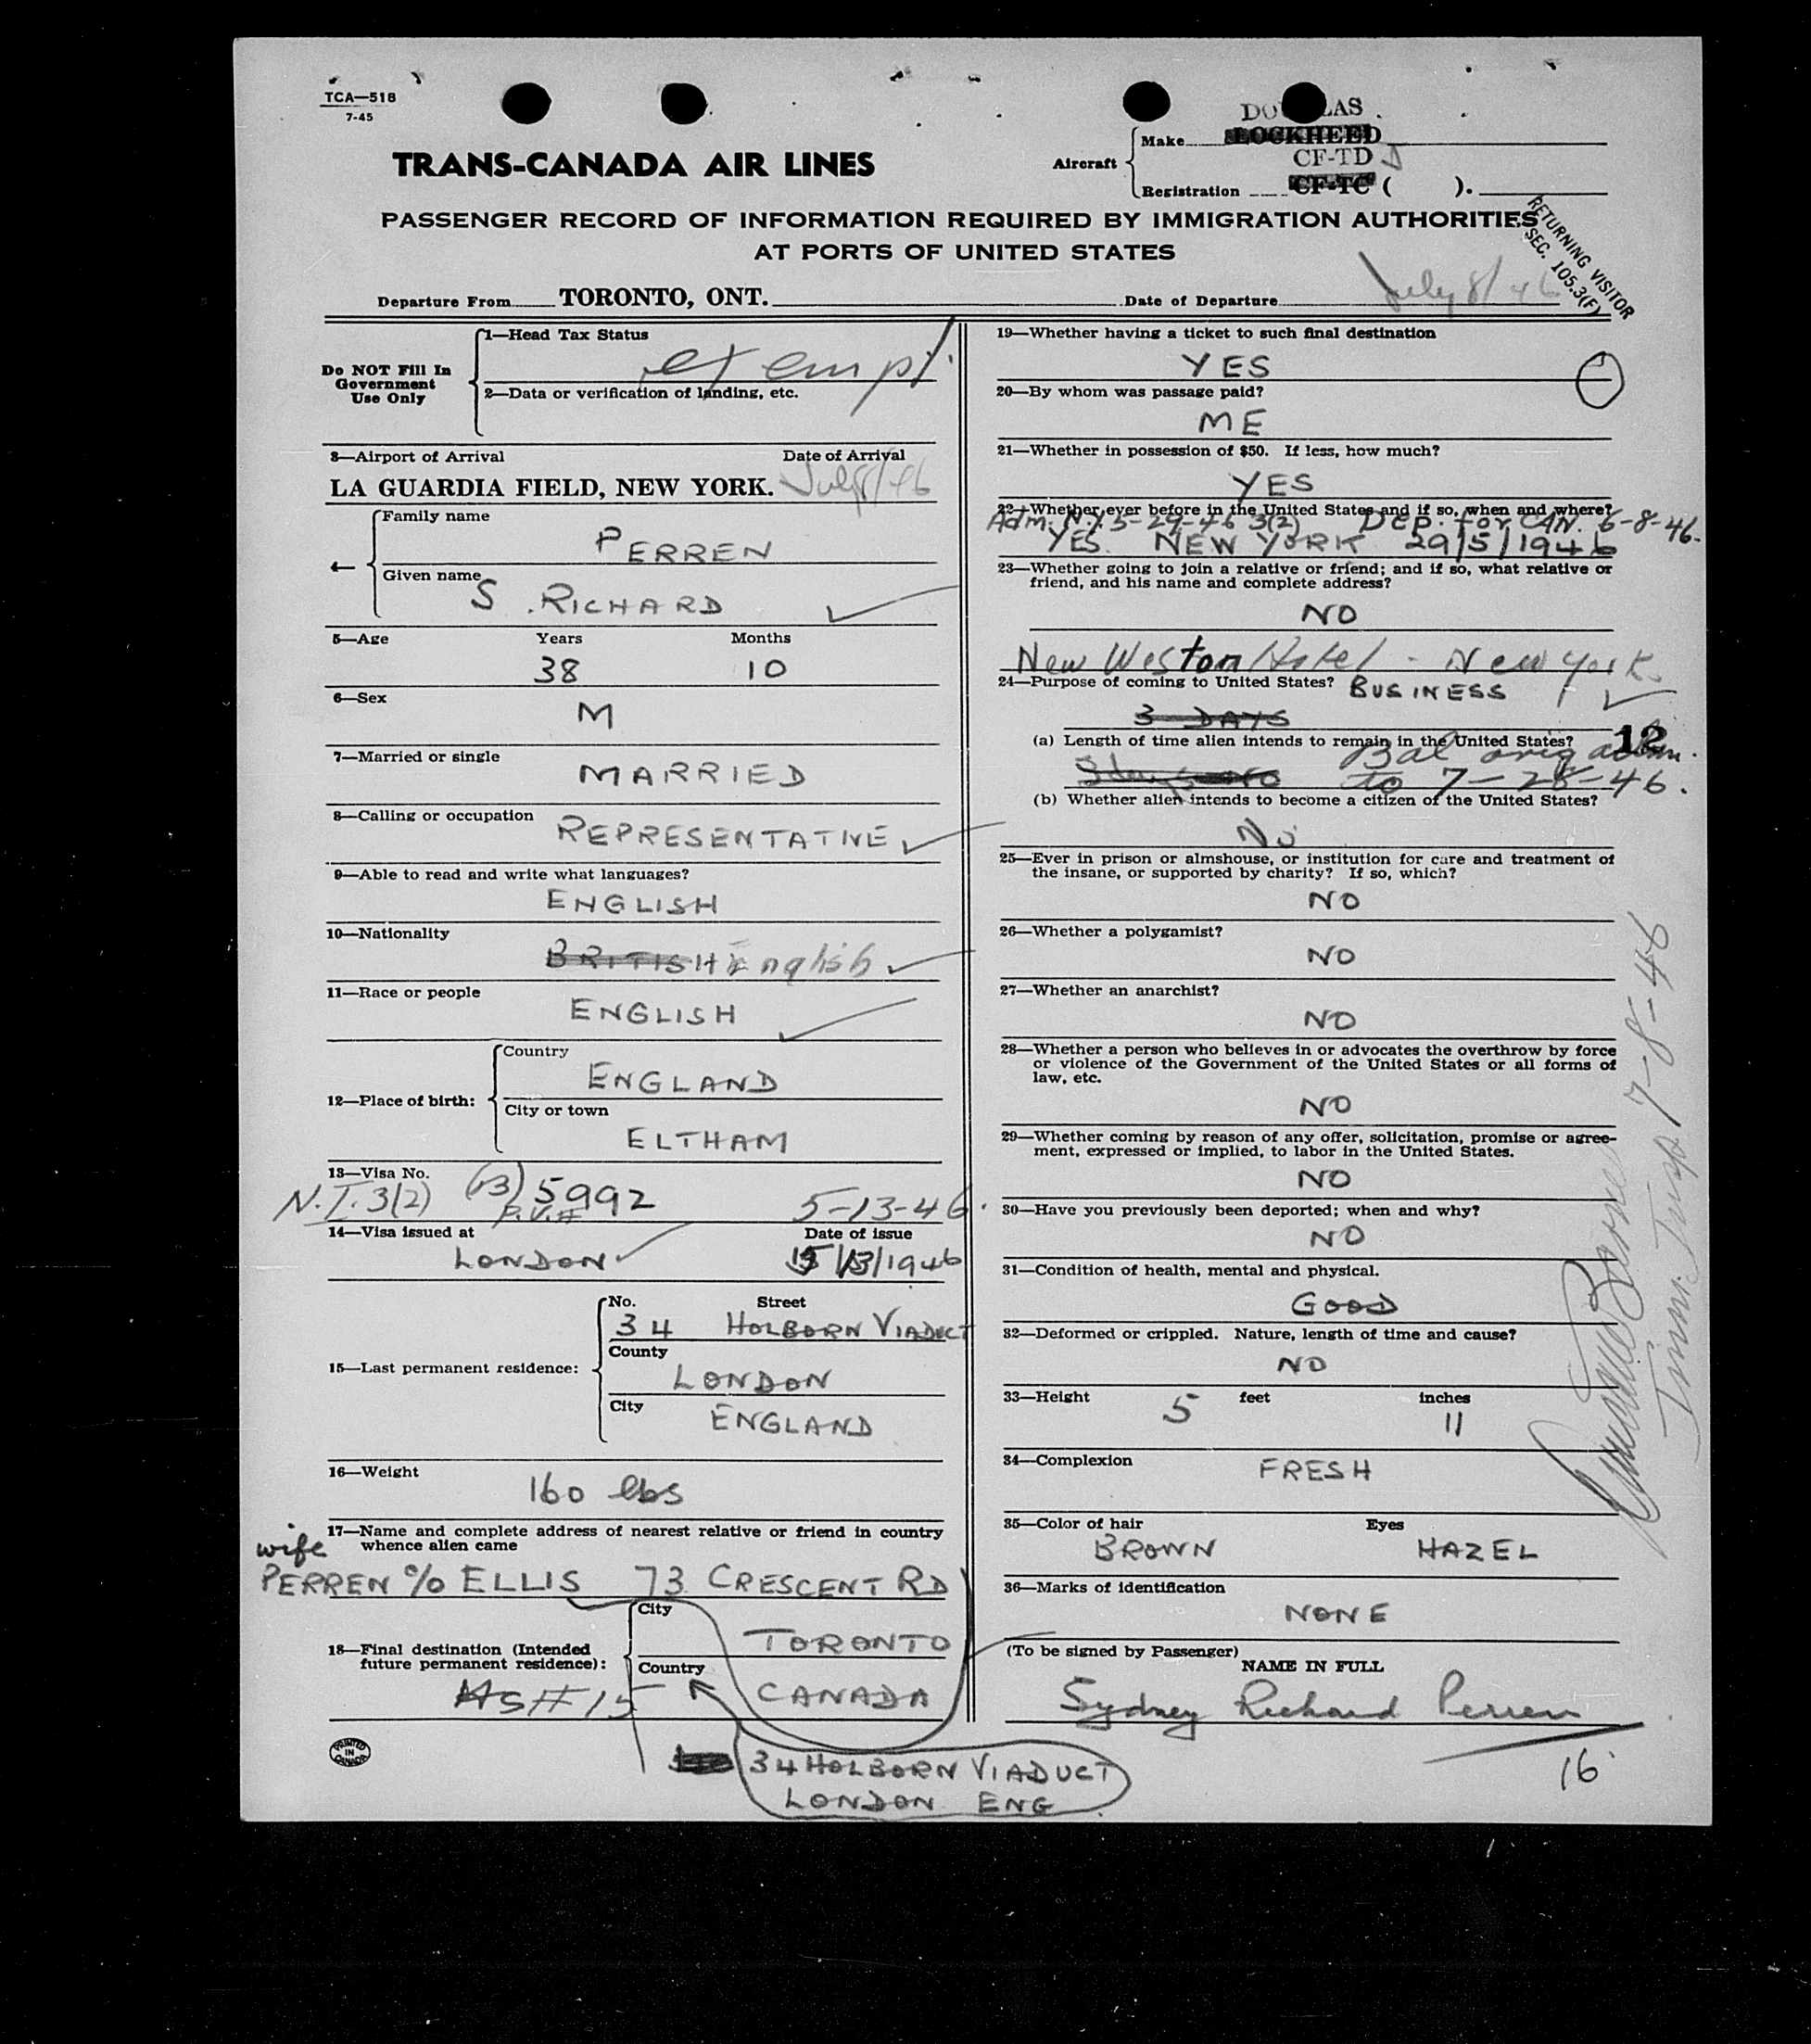 TCA—518
7-45
TRANS-CANADA AIR LINES
Aircraft
Make
LOCKHEED
CF-TD J
Registration
CF-TC ( ).
PASSENGER RECORD OF INFORMATION REQUIRED BY IMMIGRATION AUTHORITIES
AT PORTS OF UNITED STATES
RETURNING VISITOR
SEC. 105.3(F)
Departure From TORONTO, ONT. Date of Departure July 8/46
Do NOT Fill In
Government
Use Only
1—Head Tax Status
exempt.
2—Data or verification of landing, etc.
3—Airport of Arrival Date of Arrival
LA GUARDIA FIELD, NEW YORK. July 8/46
4—
Family name
PERREN
Given name
S. RICHARD
5—Age Years Months
38 10
6—Sex
M
7—Married or single
MARRIED
8—Calling or occupation
REPRESENTATIVE
9—Able to read and write what languages?
ENGLISH
10—Nationality
BRITISH English
11—Race or people
ENGLISH
12—Place of birth:
Country
ENGLAND
City or town
ELTHAM
13—Visa No.
N.I. 3(2) (B) 5992 5-13-46.
P.V.#
14—Visa issued at Date of issue
LONDON 5/13/1946
15—Last permanent residence:
No. Street
34 HOLBORN VIADUCT
County
LONDON
City
ENGLAND
16—Weight
160 lbs
17—Name and complete address of nearest relative or friend in country
whence alien came
wife
PERREN c/o ELLIS 73 CRESCENT RD
18—Final destination (Intended
future permanent residence):
City
TORONTO
Country
CANADA
AS # 15
34 HOLBORN VIADUCT
LONDON ENG
PRINTED
IN
CANADA
19—Whether having a ticket to such final destination
YES
20—By whom was passage paid?
ME
21—Whether in possession of $50. If less, how much?
YES
22—Whether ever before in the United States and if so, when and where?
Adm. N.Y. 5-29-46 3(2) DEP. for CAN. 6-8-46.
YES. NEW YORK 29/5/1946
23—Whether going to join a relative or friend; and if so, what relative or
friend, and his name and complete address?
NO
New Weston Hotel - New York.
24—Purpose of coming to United States? BUSINESS
3 DAYS
(a) Length of time alien intends to remain in the United States? 12
Bal orig adm.
to 7-28-46.
(b) Whether alien intends to become a citizen of the United States?
No
25—Ever in prison or almshouse, or institution for care and treatment of
the insane, or supported by charity? If so, which?
NO
26—Whether a polygamist?
NO
27—Whether an anarchist?
NO
28—Whether a person who believes in or advocates the overthrow by force
or violence of the Government of the United States or all forms of
law, etc.
NO
29—Whether coming by reason of any offer, solicitation, promise or agree-
ment, expressed or implied, to labor in the United States.
NO
30—Have you previously been deported; when and why?
NO
31—Condition of health, mental and physical.
GOOD
32—Deformed or crippled. Nature, length of time and cause?
NO
33—Height 5 feet 11 inches
34—Complexion FRESH
35—Color of hair Eyes
BROWN HAZEL
36—Marks of identification
NONE
(To be signed by Passenger)
NAME IN FULL
Sydney Richard Perren
16
Barnes
Imm. Insp 7-8-46